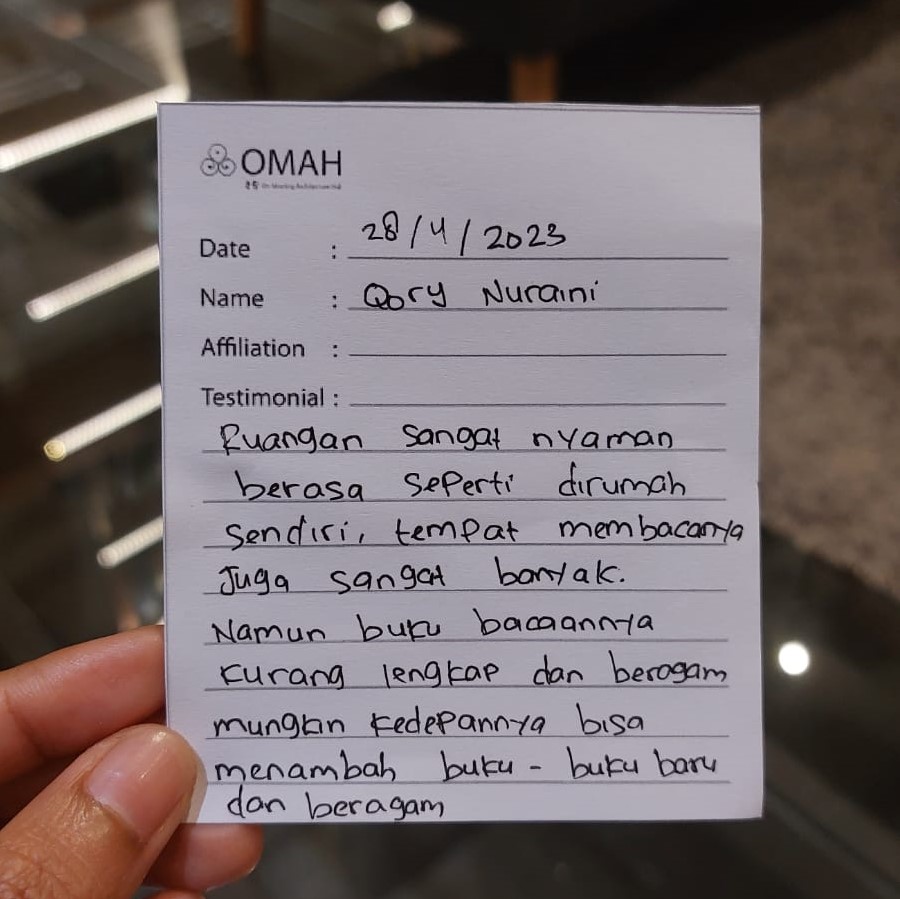 OMAH
Date : 28/4/2023
Name : Qory Nuraini
Affiliation :
Testimonial :
Ruangan sangat nyaman
berasa seperti dirumah
sendiri, tempat membacanya
Juga sangat banyak.
Namun buku bacaannya
kurang lengkap dan beragam
mungkin kedepannya bisa
menambah buku - buku baru
dan beragam